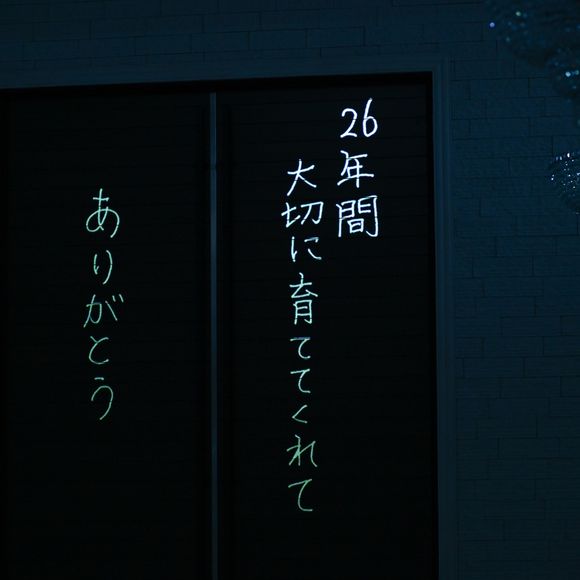 26年間
大切に育ててくれて
ありがとう